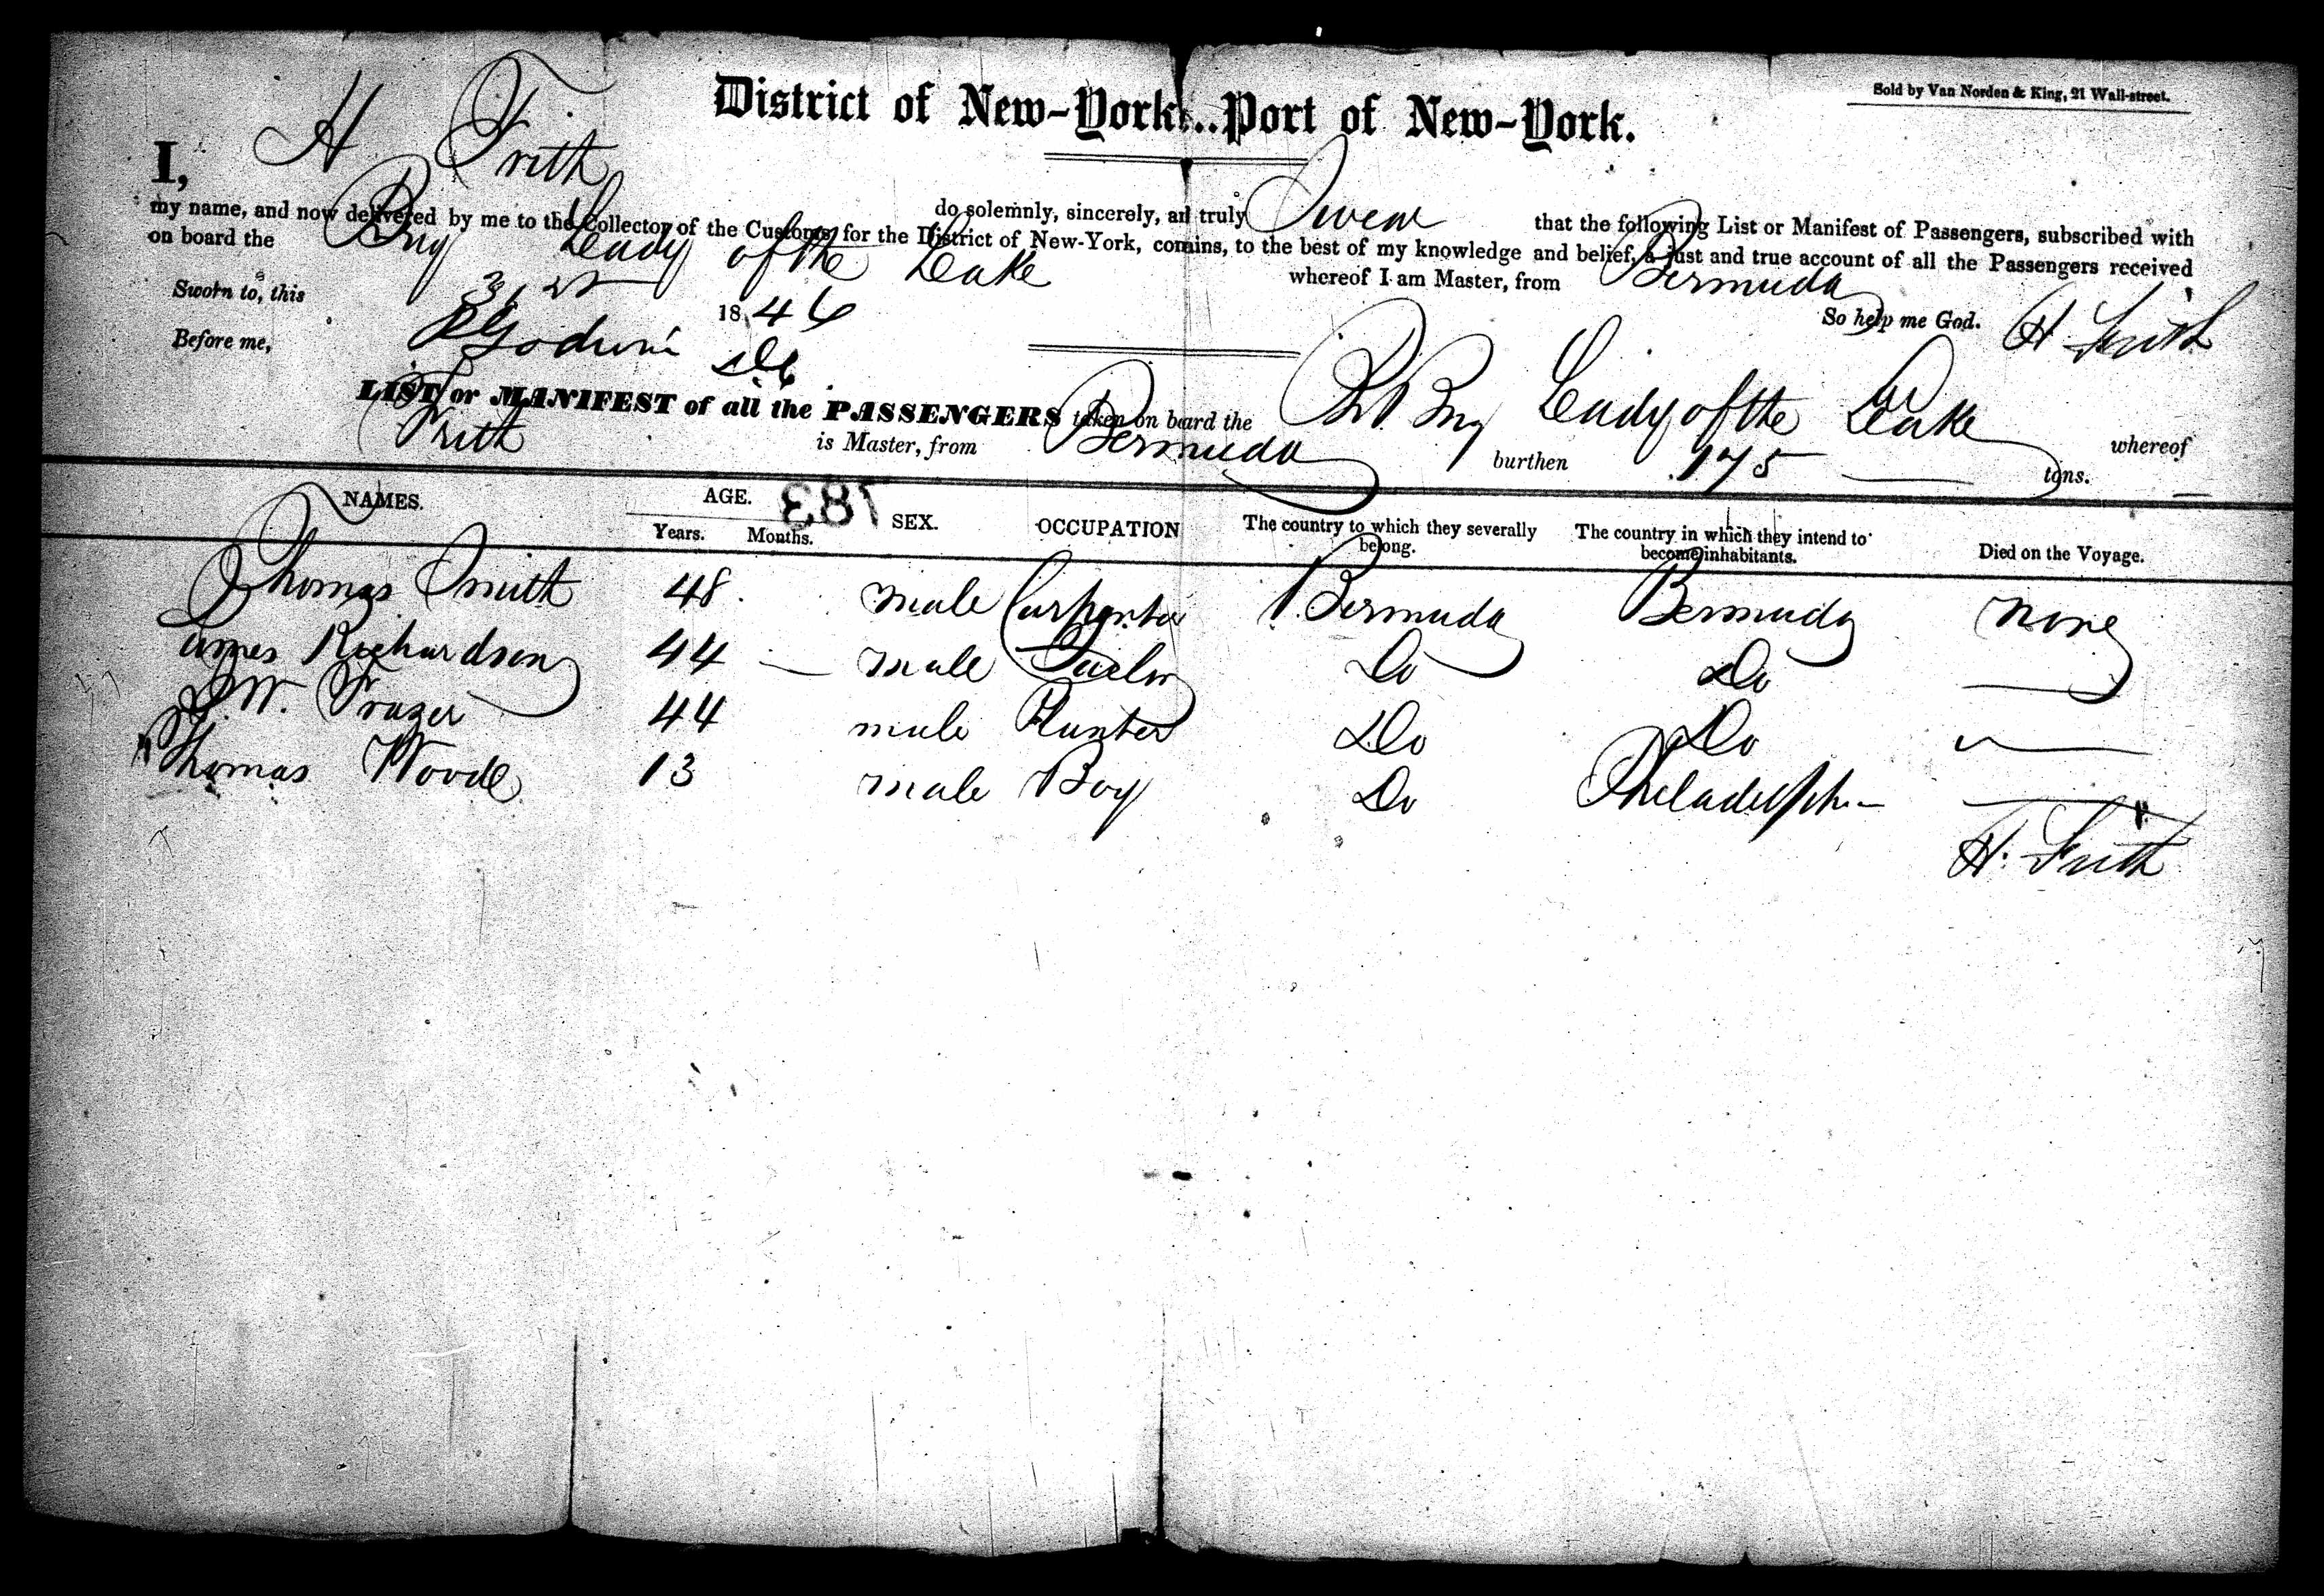 Sold by Van Norden & King, 21 Wall-street.
District of New-York...Port of New-York.
I, H Frith do solemnly, sincerely, and truly Swear that the following List or Manifest of Passengers, subscribed with
my name, and now delivered by me to the Collector of the Customs for the District of New-York, contains, to the best of my knowledge and belief, a just and true account of all the Passengers received
on board the Brig Lady of the Lake whereof I am Master, from Bermuda
Sworn to, this 31st 1846 So help me God. H Frith
Before me,
LIST or MANIFEST of all the PASSENGERS taken on board the Br Brig Lady of the Lake whereof
Frith is Master, from Bermuda burthen 175 tons.
183
NAMES. AGE. SEX. OCCUPATION The country to which they severally belong. The country in which they intend to become inhabitants. Died on the Voyage.
Years. Months.
Thomas Smith 48. male Carpenter Bermuda Bermuda none
James Richardson 44 — male Do Do —
W. Frazer 44 male Planter Do Do —
Thomas Wood 13 male Boy Do Philadelph— —
H. Frith